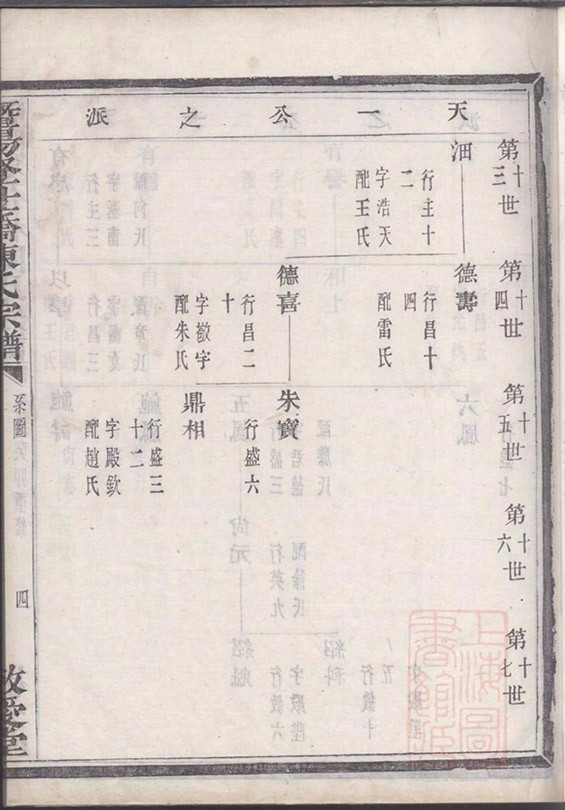 天一公之派
第十三世
第十四世
第十五世
第十六世
第十七世
沺
行主十二
字浩天
配王氏
德壽
行昌十四
配雷氏
德喜
行昌二十
字敬宇
配朱氏
朱寶
行盛六
鼎相
行盛三十二
字殿欽
配趙氏
陳氏宗譜
系圖
四
敬愛堂
上海圖書館藏